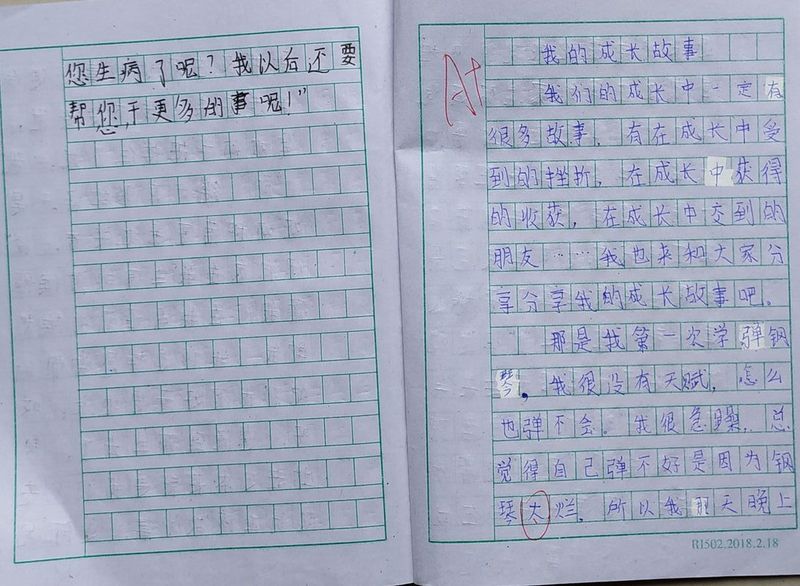 您生病了呢？我以后还要
帮您干更多的事呢！”
A+
我的成长故事
我们的成长中一定有
很多故事，有在成长中受
到的挫折，在成长中获得
的收获，在成长中交到的
朋友……我也来和大家分
享分享我的成长故事吧。
那是我第一次学弹钢
琴，我很没有天赋，怎么
也弹不会。我很急躁，总
觉得自己弹不好是因为钢
琴太烂，所以我那天晚上
RJ502.2018.2.18